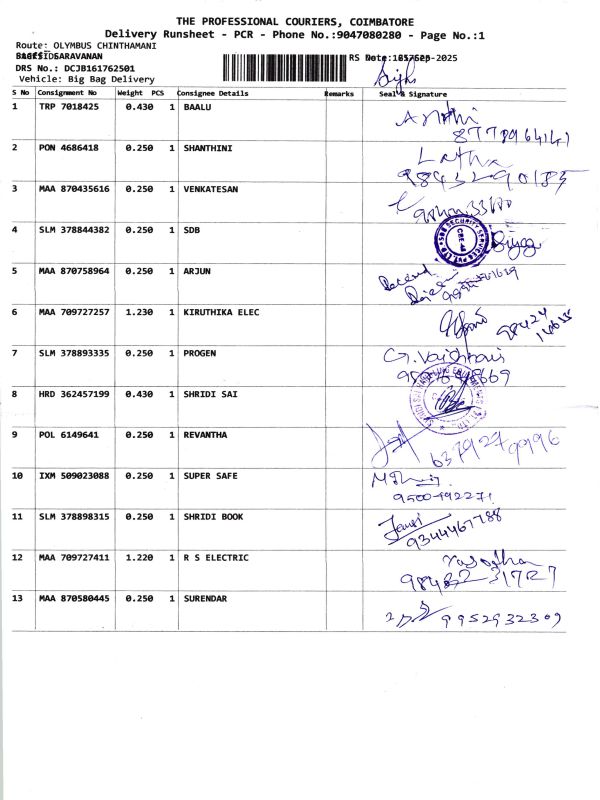 THE PROFESSIONAL COURIERS, COIMBATORE
Delivery Runsheet - PCR - Phone No.:9047080280 - Page No.:1
Route: OLYMBUS CHINTHAMANI
SARAVANAN
DRS No.: DCJB161762501
Vehicle: Big Bag Delivery
S No Consignment No Weight PCS Consignee Details Remarks Seal & Signature
1 TRP 7018425 0.430 1 BAALU
8778964141
2 PON 4686418 0.250 1 SHANTHINI Latha
9843290185
3 MAA 870435616 0.250 1 VENKATESAN
4 SLM 378844382 0.250 1 SDB
5 MAA 870758964 0.250 1 ARJUN Received
6 MAA 709727257 1.230 1 KIRUTHIKA ELEC 98424
7 SLM 378893335 0.250 1 PROGEN
8 HRD 362457199 0.430 1 SHRIDI SAI
9 POL 6149641 0.250 1 REVANTHA
6379279996
10 IXM 509023088 0.250 1 SUPER SAFE
9500492271
11 SLM 378898315 0.250 1 SHRIDI BOOK
9344467788
12 MAA 709727411 1.220 1 R S ELECTRIC
13 MAA 870580445 0.250 1 SURENDAR 9952932309